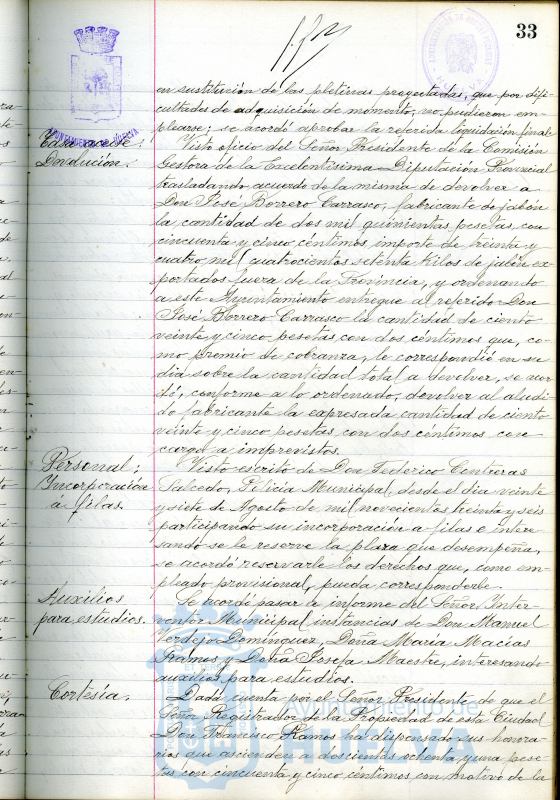 33
en sustitución de las pletinas proyectadas, que por difi-
cultades de adquisición de momento, no pudieron em-
plearse; se acordó aprobar la referida liquidación final.
Tasa aceite:
Devolución.
Visto oficio del Señor Presidente de la Comisión
Gestora de la Excelentísima Diputación Provincial
trasladando acuerdo de la misma de devolver a
Don José Borrero Carrasco, fabricante de jabón
la cantidad de dos mil quinientas pesetas, con
cincuenta y cinco céntimos, importe de treinta y
cuatro mil cuatrocientos setenta kilos de jabón ex-
portados fuera de la Provincia, y ordenando
a este Ayuntamiento entregue al referido Don
José Borrero Carrasco la cantidad de ciento
veinte y cinco pesetas con dos céntimos que, co-
mo premio de cobranza, le correspondió en su
día sobre la cantidad total a devolver, se acor-
dó, conforme a lo ordenado, devolver al aludi-
do fabricante la expresada cantidad de ciento
veinte y cinco pesetas con dos centimos con
cargo a imprevistos.
Personal;
Incorporación
á filas.
Visto escrito de Don Federico Contreras
Salcedo, Policía Municipal, desde el dia veinte
y siete de Agosto de mil novecientos treinta y seis
participando su incorporación a filas e intere-
sando se le reserve la plaza que desempeña,
se acordó reservarle los derechos que, como em-
pleado provisional, pueda corresponderle.
Auxilios
para estudios.
Se acordó pasar a informe del Señor Inter-
ventor Municipal instancias de Don Manuel
Verdejo Domínguez, Doña María Macías
Ramos y Doña Josefa Maestre, interesando
auxilios para estudios.
Cortesía.
Dada cuenta por el Señor Presidente de que el
Señor Registrador de la Propiedad de esta Ciudad
Don Francisco Ramos ha dispensado sus honora-
rios que ascienden a doscientas ochenta y una pese-
tas con cincuenta y cinco céntimos con motivo de la
Ayuntamiento de
HUELVA